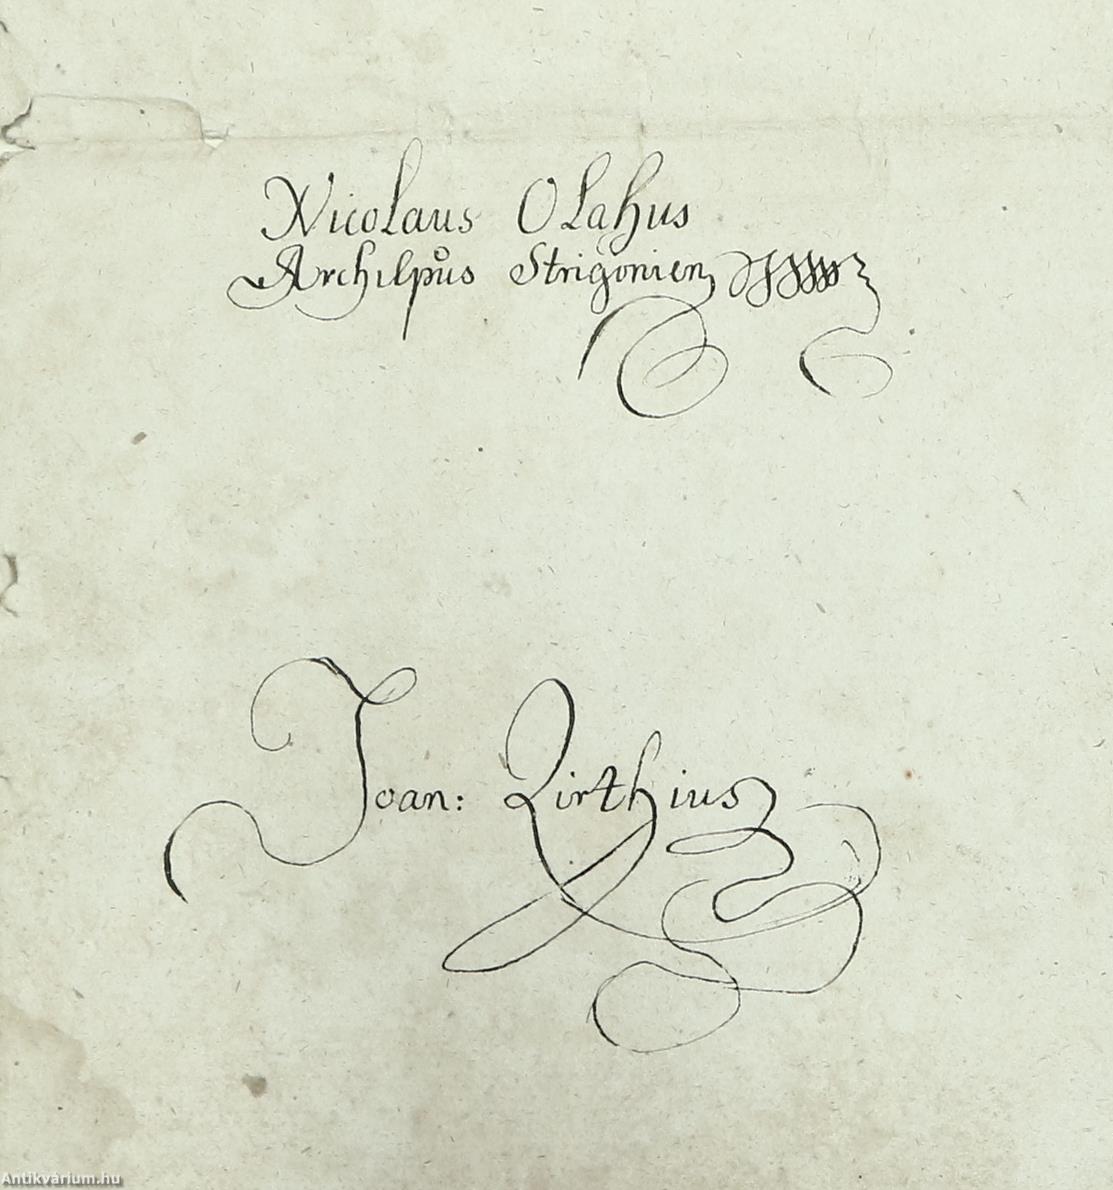 Nicolaus Olahus
Archiepus Strigonien
Joan: Lirthius
Antikvárium.hu